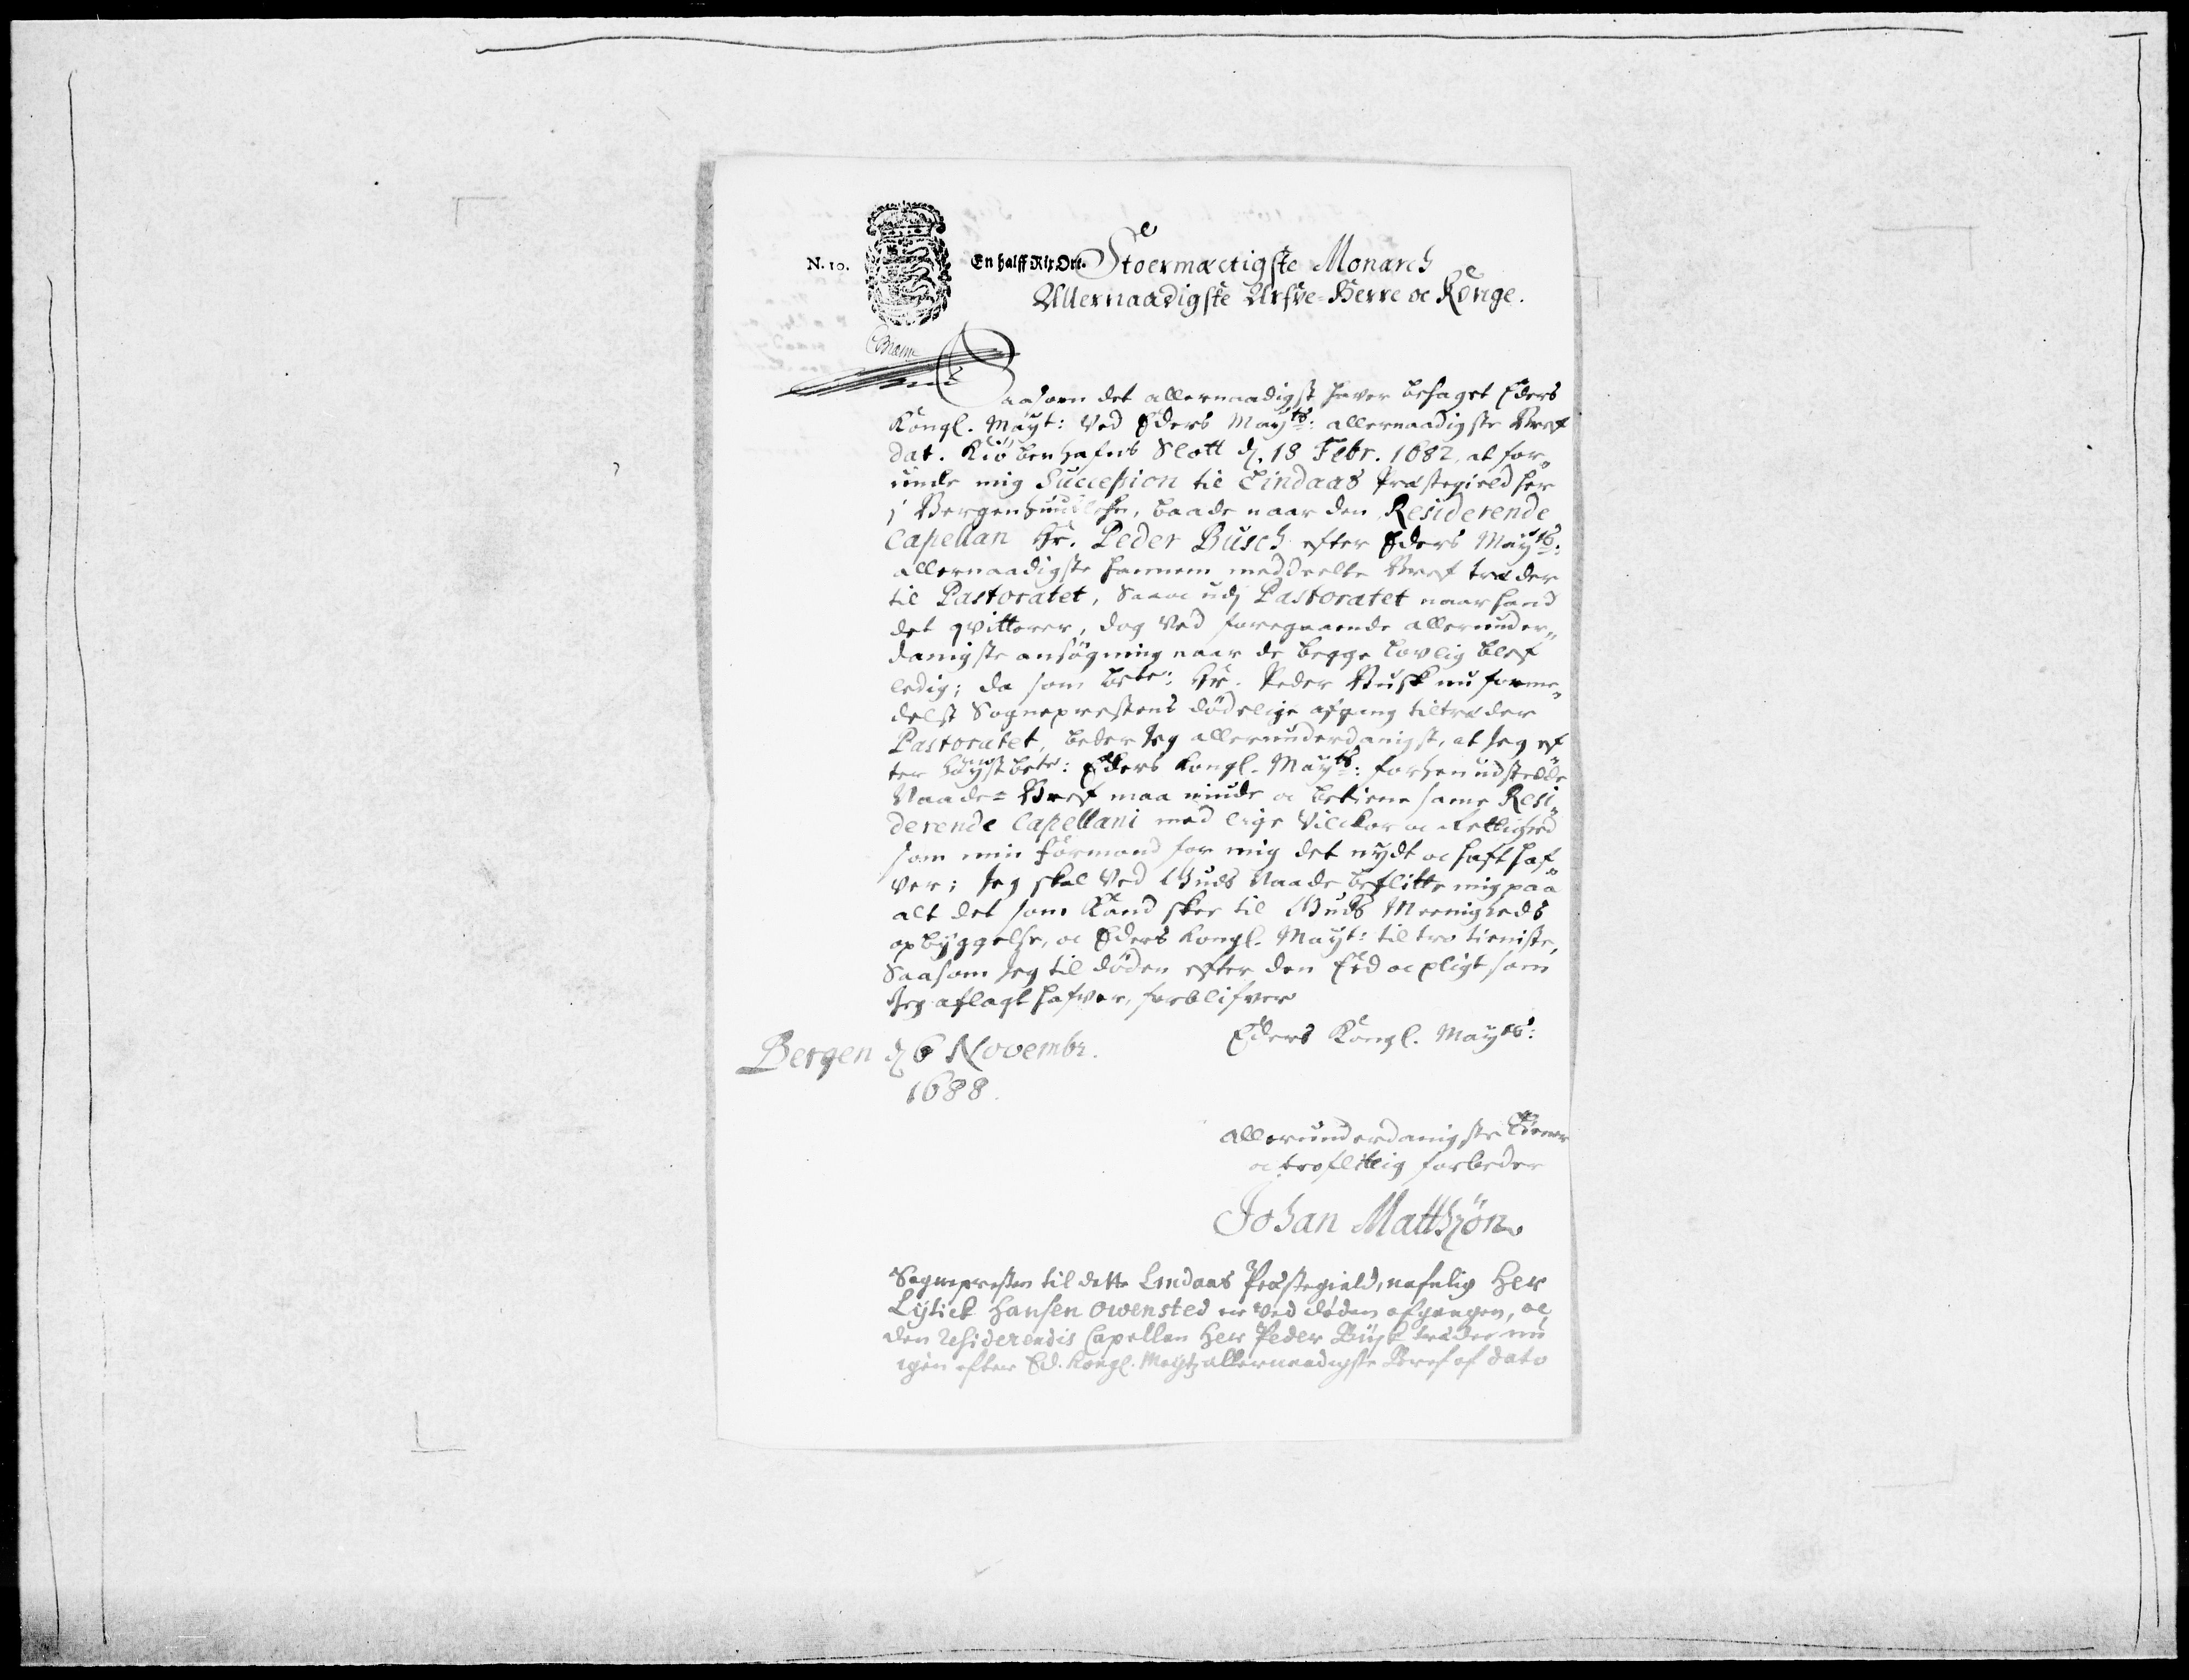 N. 10.
En halff Rix Ort.
Stoermæctigste Monarch
Allernaadigste Arfve-Herre oc Konge.
Saasom det allernaadigst haver behaget Eders
Kongl. Mayt: ved Eders Mayts: allernaadigste Bref
dat. Kiøbenhafns Slott d. 18 Febr. 1682, at for„
unde mig Succession til Lindaas Præstegield her
i Bergenhuus lehn, baade naar den Residerende
Capellan Hr. Peder Büsch efter Eders Mayts:
allernaadigste hannem meddeelte Bref træder
til Pastoratet, Saa oc udj Pastoratet naar hand
det qvitterer, dog ved foregaaende allerunder„
danigste ansøgning naar de begge lovlig blef
ledig; da som bete: Hr. Peder Busk nu forme„
delst Sogneprestens dødelige afgang tiltræder
Pastoratet, beder Jeg allerunderdanigst, at Jeg ef„
ter høystbete: Eders Kongl. Mayts: forhen udstedde
Naade= Bref maa niude oc betiene samme Resi„
derende Capellani med lige vilckor oc Rettighed
som min formand for mig det nydt oc haft haf„
ver; Jeg skal ved Guds Naade beflitte mig paa
alt det som kand skee til Guds Meenigheds
opbyggelse, oc Eders Kongl. Mayt: til tro tieniste,
Saasom Jeg til døden efter den Eed oc pligt som
Jeg aflagt hafver, forblifver
Eders Kongl. Mayts:
Bergen d 6 Novembr.
1688.
allerunderdanigste tiener
oc troflittig forbeder
Johan Matthzøn
Sognepresten til dette Lindaas Præstegield, nafnlig Her
Lytick Hansen Owensted er ved døden afgangen, oc
den residerendis Capellan Her Peder Büsk træder nu
igien efter Ed. Kongl. Mayts allernaadigste Bref af dato